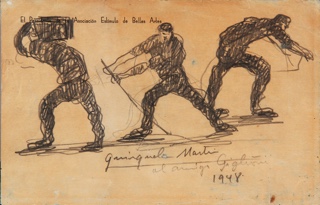 El Pr Asociación Estímulo de Bellas Artes
Quinquela Martín
al amigo
1948